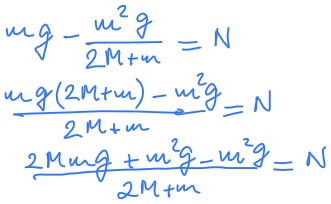 mg - \frac{m^2 g}{2M+m} = N
\frac{mg(2M+m) - m^2 g}{2M+m} = N
\frac{2Mmg + m^2 g - m^2 g}{2M+m} = N